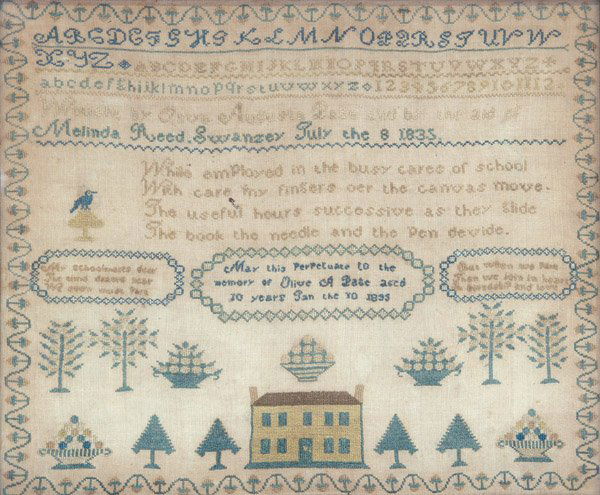 ABCDEFGHIKLMNOPQRSTUVW
XYZ ABCDEFGHIKLMNOPQRSTUVWXYZ
abcdefghijklmnopqrstuvwxyz 123456789101112
Wrought by Olive Augusta Date and by the aid of
Melinda Reed. Swanzey July the 8 1835.
While employed in the busy cares of school
With care my fingers oer the canvas move.
The useful hours successive as they glide
The book the needle and the Pen devide.
My schoolmates dear
The time draws near
May this Perpetuate to the
memory of Olive A Date aged
10 years Jan the 10 1835
That when we
Then we Join in